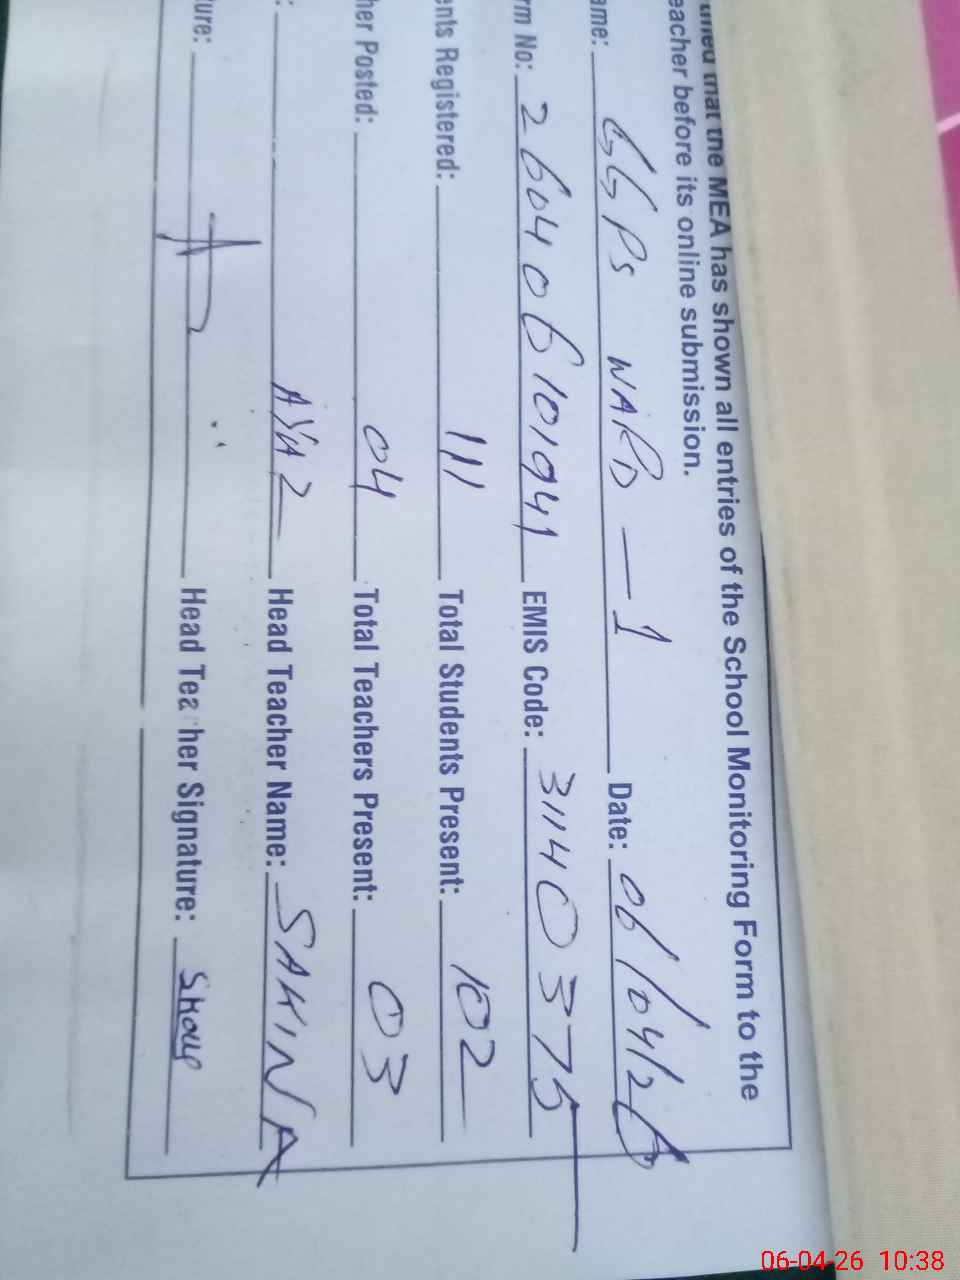 that the MEA has shown all entries of the School Monitoring Form to the
eacher before its online submission.
ame: GGPS WARD - 1 Date: 06/04/26
rm No: 260406101941 EMIS Code: 31140375
ents Registered: 111 Total Students Present: 102
her Posted: 04 Total Teachers Present: 03
: AYAZ Head Teacher Name: SAKINA
ure: Head Teacher Signature:
06-04-26 10:38